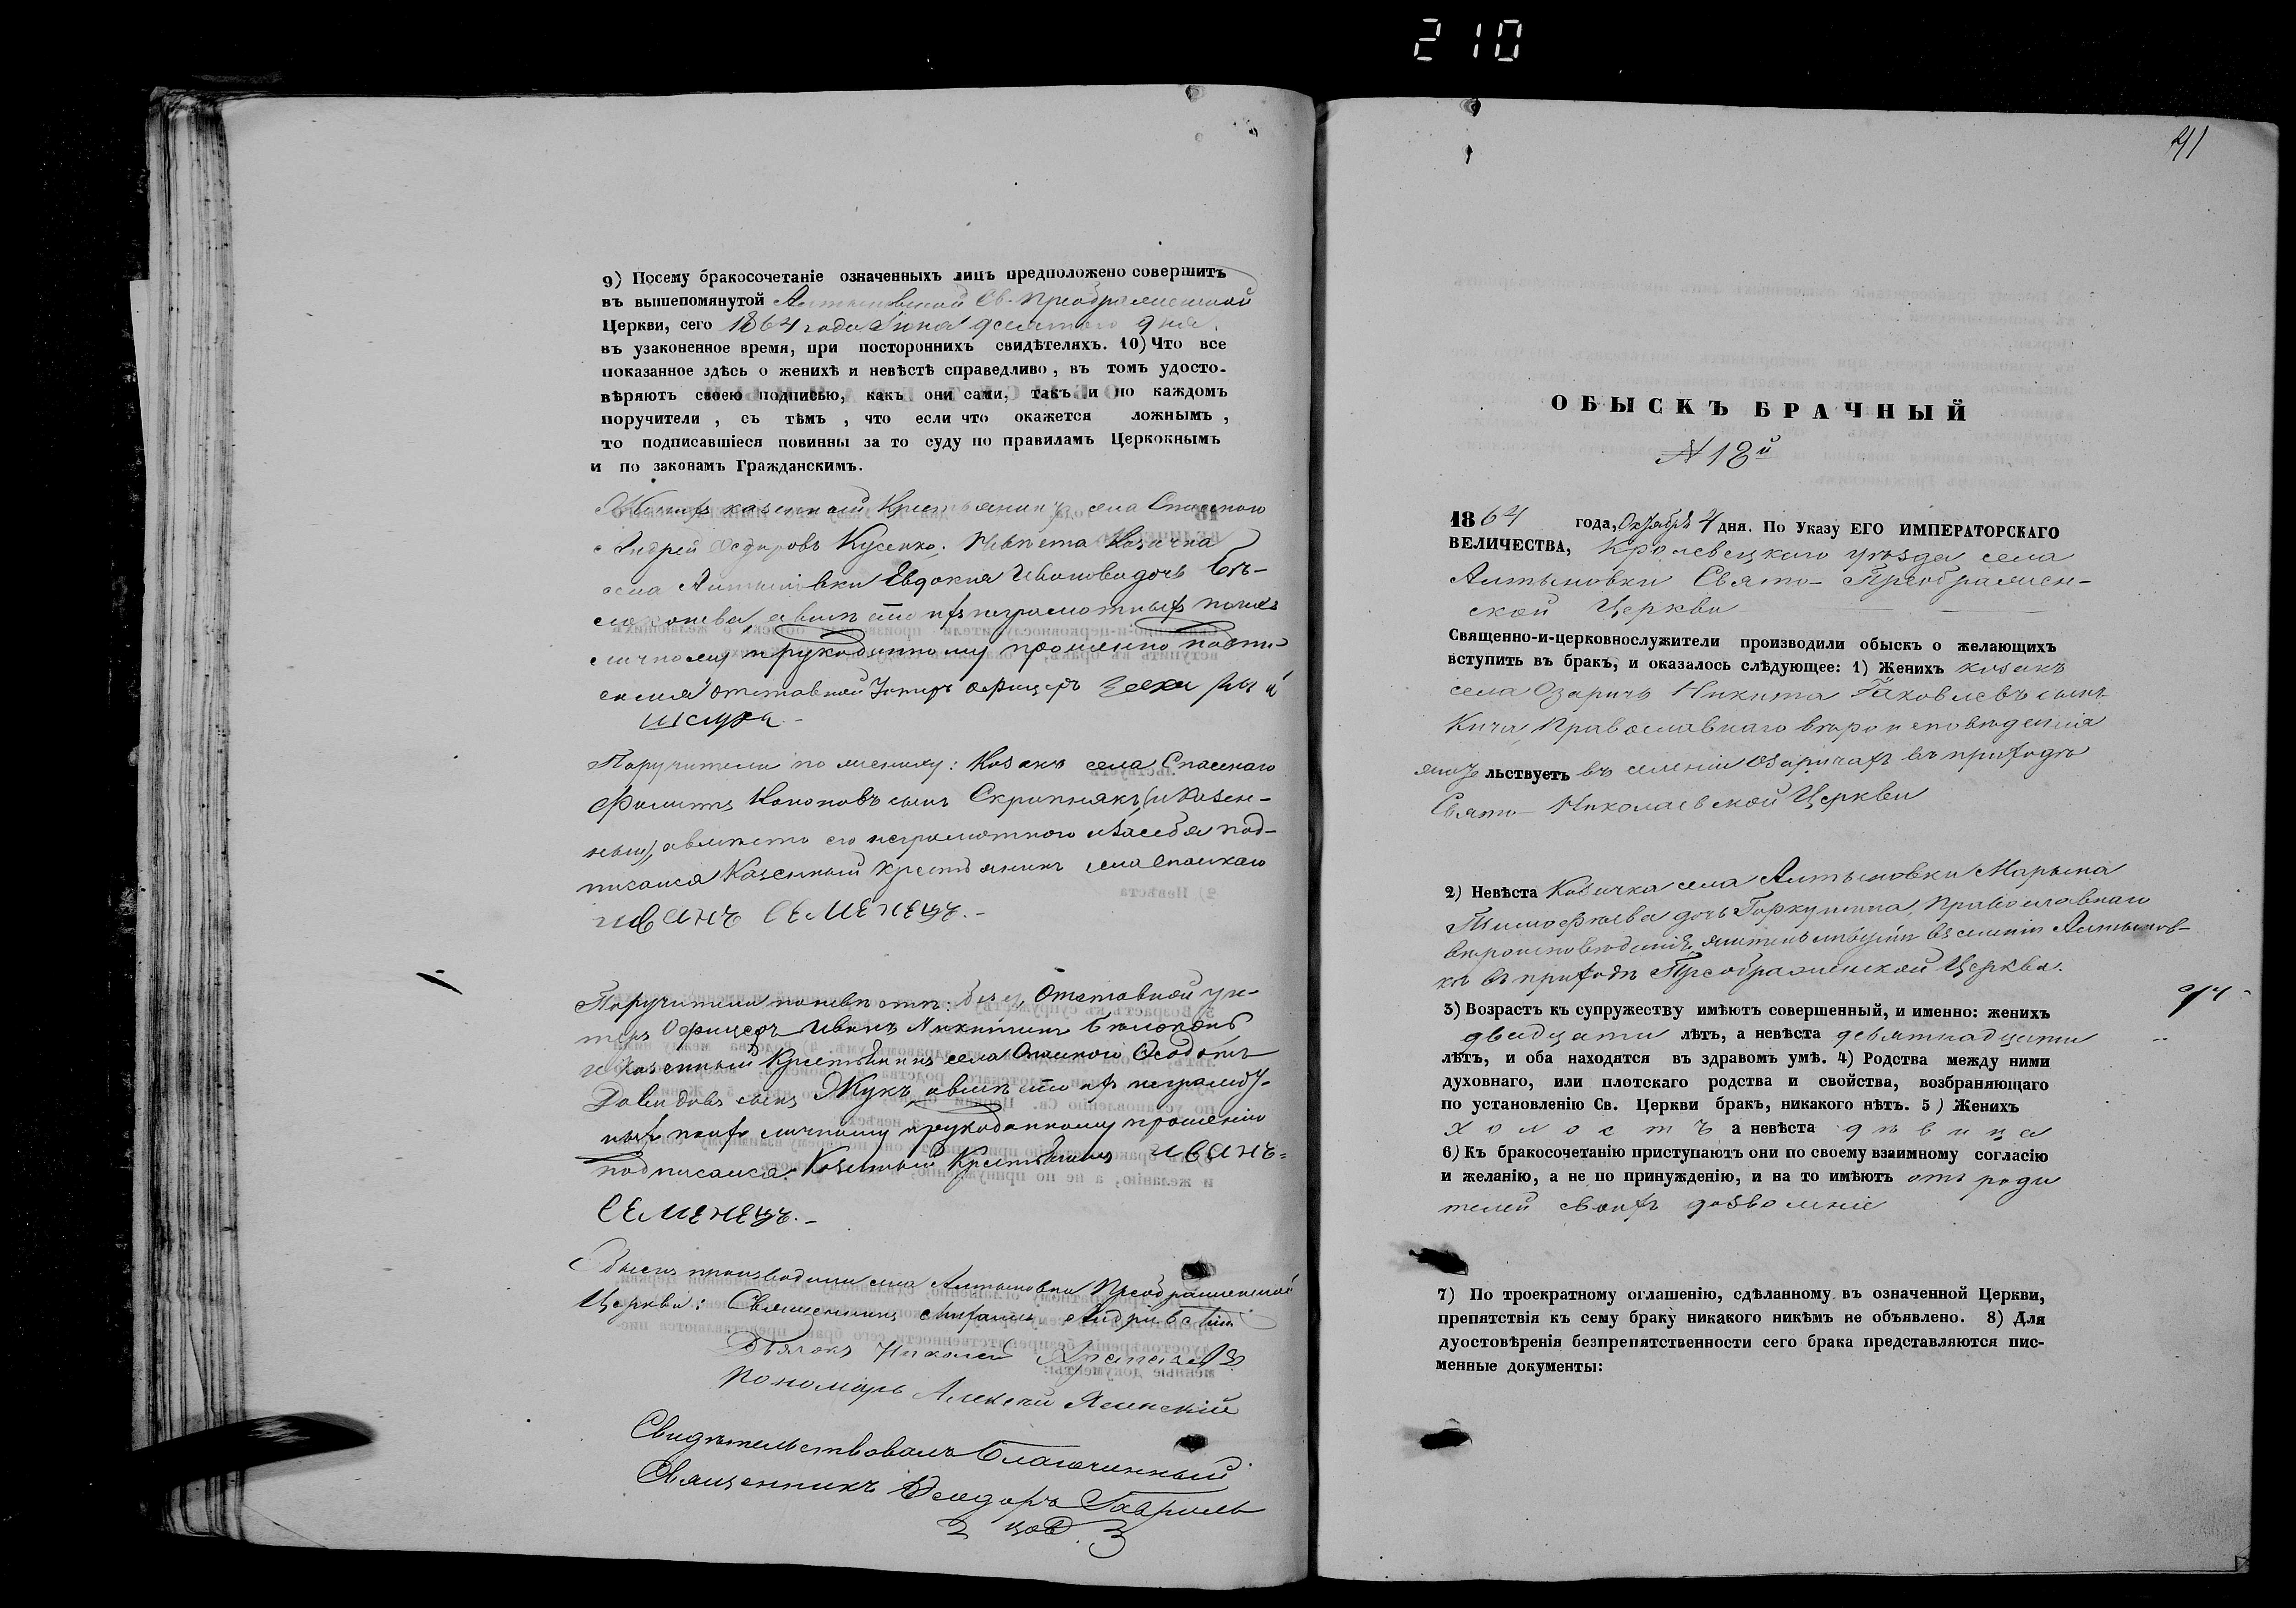 210
9) Посему бракосочетаніе означенныхъ лицъ предположено совершить
въ вышепомянутой Алтыновской Св. Преображенской
Церкви, сего 1864 года Іюня десятаго дня.
въ узаконенное время, при постороннихъ свидѣтеляхъ. 10) Что все
показанное здѣсь о женихѣ и невѣстѣ справедливо, въ томъ удосто-
вѣряютъ своею подписью, какъ они сами, такъ и по каждомъ
поручители, съ тѣмъ, что если что окажется ложнымъ,
то подписавшіеся повинны за то суду по правиламъ Церкокнымъ
и по законамъ Гражданскимъ.
Женихъ казенный Крестьянинъ села Спаскаго
Андрей Федоровъ Кусенко. Невѣста Козачка
села Алтыновки Евдокия Иванова дочь Бѣ-
а вмѣсто ихъ неграмотныхъ по ихъ
личному прукоданному прошенію подпи-
сался отставной Унтеръ офицеръ
Поручители по жениху: Козакъ села Спаскаго
Филипъ Кононовъ сынъ Скрипнякъ (и Казен-
ный), авмѣсто его неграмотного и засебя под-
писался Казенный крестьянинъ села Спаскаго
иванъ СЕМЕНЕЦЪ.-
Поручители поневѣстѣ: Отставной ун-
теръ Офицеръ Иванъ Никитинъ Бѣлоконь
и казенный Крестьянинъ села Спаского Феодотъ
Давидовъ сынъ Жукъ, авмѣсто ихъ неграмот-
ныхъ поихъ личному прукоданному прошенію
подписался: Казенный Крестьянинъ ИВАНЪ-
СЕМЕНЕЦЪ.-
Обыскъ производили села Алтыновки Преображенской
Церкви: Священникъ
Дьячокъ Николай
Пономарь Алексей Ясинскій
Свидѣтельствовалъ Благочинный
Священникъ Феодоръ Гаврилъ
241
ОБЫСКЪ БРАЧНЫЙ
№ 18й
1864 года, Октября 4 дня. По Указу ЕГО ИМПЕРАТОРСКАГО
ВЕЛИЧЕСТВА, Кролевецкаго уѣзда села
Алтыновки Свято- Преображен-
ской Церкви
Священно-и-церковнослужители производили обыскъ о желающихъ
вступить въ бракъ, и оказалось слѣдующее: 1) Женихъ козакъ
села Озаричъ Никита Яковлевъ сынъ
Кича, Православнаго вѣроисповѣденія
жительствуетъ въ селеніи Озаричахъ въ приходѣ
Свято- Николаевской Церкви
2) Невѣста Козачка села Алтыновки Марьяна
Тимофѣева дочь Горкушина, Православнаго
вѣроисповѣденія, въ селеніи Алтынов-
кѣ въ приходѣ Преображенской Церкви.
3) Возрастъ къ супружеству имѣютъ совершенный, и именно: женихъ
двадцати лѣтъ, а невѣста девятнадцати
лѣтъ, и оба находятся въ здравомъ умѣ. 4) Родства между ними
духовнаго, или плотскаго родства и свойства, возбраняющаго
по установленію Св. Церкви бракъ, никакого нѣтъ. 5) Женихъ
холостъ а невѣста дѣвица
6) Къ бракосочетанію приступаютъ они по своему взаимному согласію
и желанію, а не по принужденію, и на то имѣютъ отъ роди
телей своихъ дозволеніе
7) По троекратному оглашенію, сдѣланному въ означенной Церкви,
препятствія къ сему браку никакого никѣмъ не объявлено. 8) Для
дуостовѣренія безпрепятственности сего брака представляются пис-
менные документы: